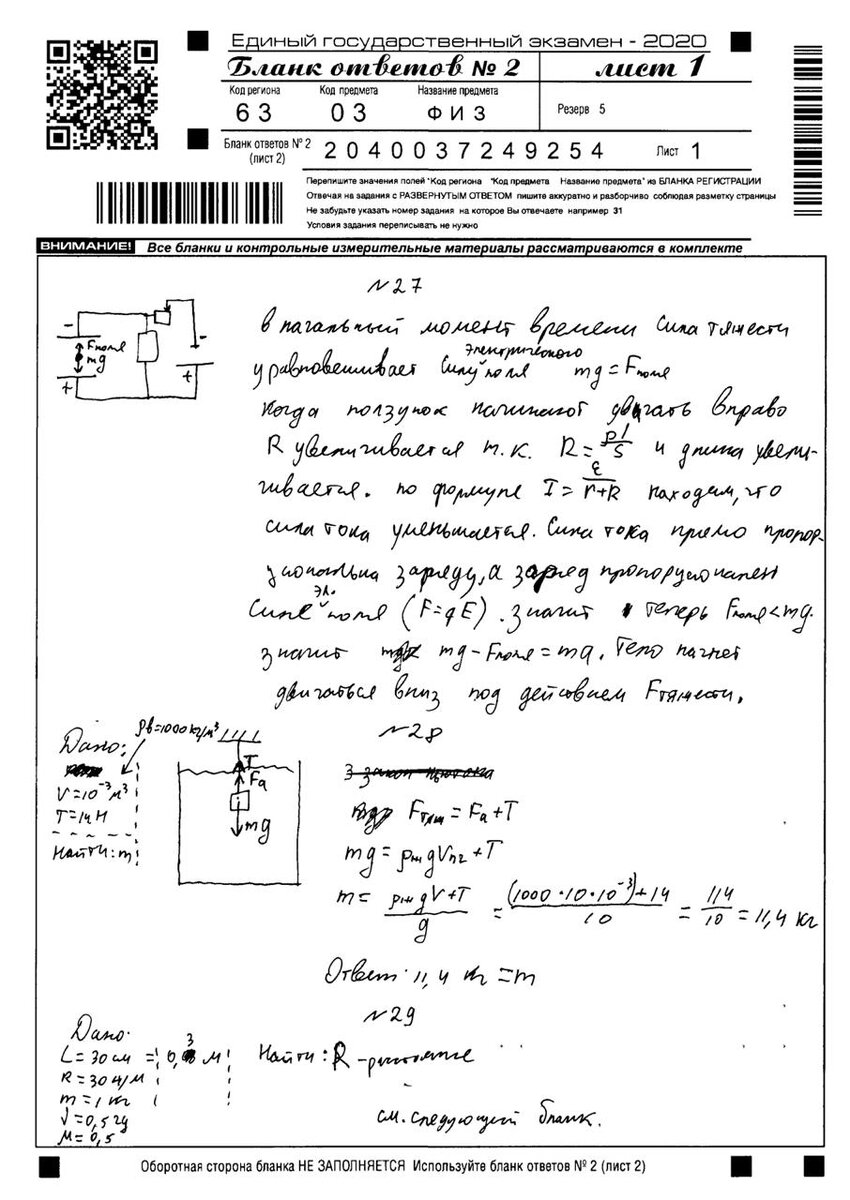 Единый государственный экзамен - 2020
Бланк ответов № 2 лист 1
Код региона Код предмета Название предмета
63 03 ФИЗ Резерв 5
Бланк ответов № 2 (лист 2) 2040037249254 Лист 1
Перепишите значения полей "Код региона "Код предмета Название предмета" из БЛАНКА РЕГИСТРАЦИИ
Отвечая на задания с РАЗВЕРНУТЫМ ОТВЕТОМ пишите аккуратно и разборчиво соблюдая разметку страницы
Не забудьте указать номер задания на которое Вы отвечаете например 31
Условия задания переписывать не нужно
ВНИМАНИЕ! Все бланки и контрольные измерительные материалы рассматриваются в комплекте
№27
- Fполя mg + - +
в начальный момент времени сила тяжести
уравновешивает силу электрического поля mg = Fполя
Когда ползунок начинают двигать вправо
R увеличивается т.к. R = ρl/S и длина увели-
чивается. по формуле I = ε/(r+R) находим, что
сила тока уменьшается. Сила тока прямо пропор-
циональна заряду, а заряд пропорционален
силе эл. поля (F=qE). значит теперь Fполя < mg.
значит mg - Fполя = ma. Тело начнет
двигаться вниз под действием Fтяжести.
№28
Дано: ρв=1000 кг/м³
V=10⁻³ м³
T=14 Н
Найти: m
T
Fa
mg
3 закон Ньютона
Fтяж = Fa + T
mg = ρж g Vпч + T
m = (ρж g V + T)/g = ((1000·10·10⁻³)+14)/10 = 114/10 = 11,4 кг
Ответ: 11,4 кг = m
№29
Дано:
L = 30 см = 0,3 м
R = 30 Н/м
m = 1 кг
M = 0,5
Найти: R - расстояние
см. следующий бланк.
Оборотная сторона бланка НЕ ЗАПОЛНЯЕТСЯ Используйте бланк ответов № 2 (лист 2)